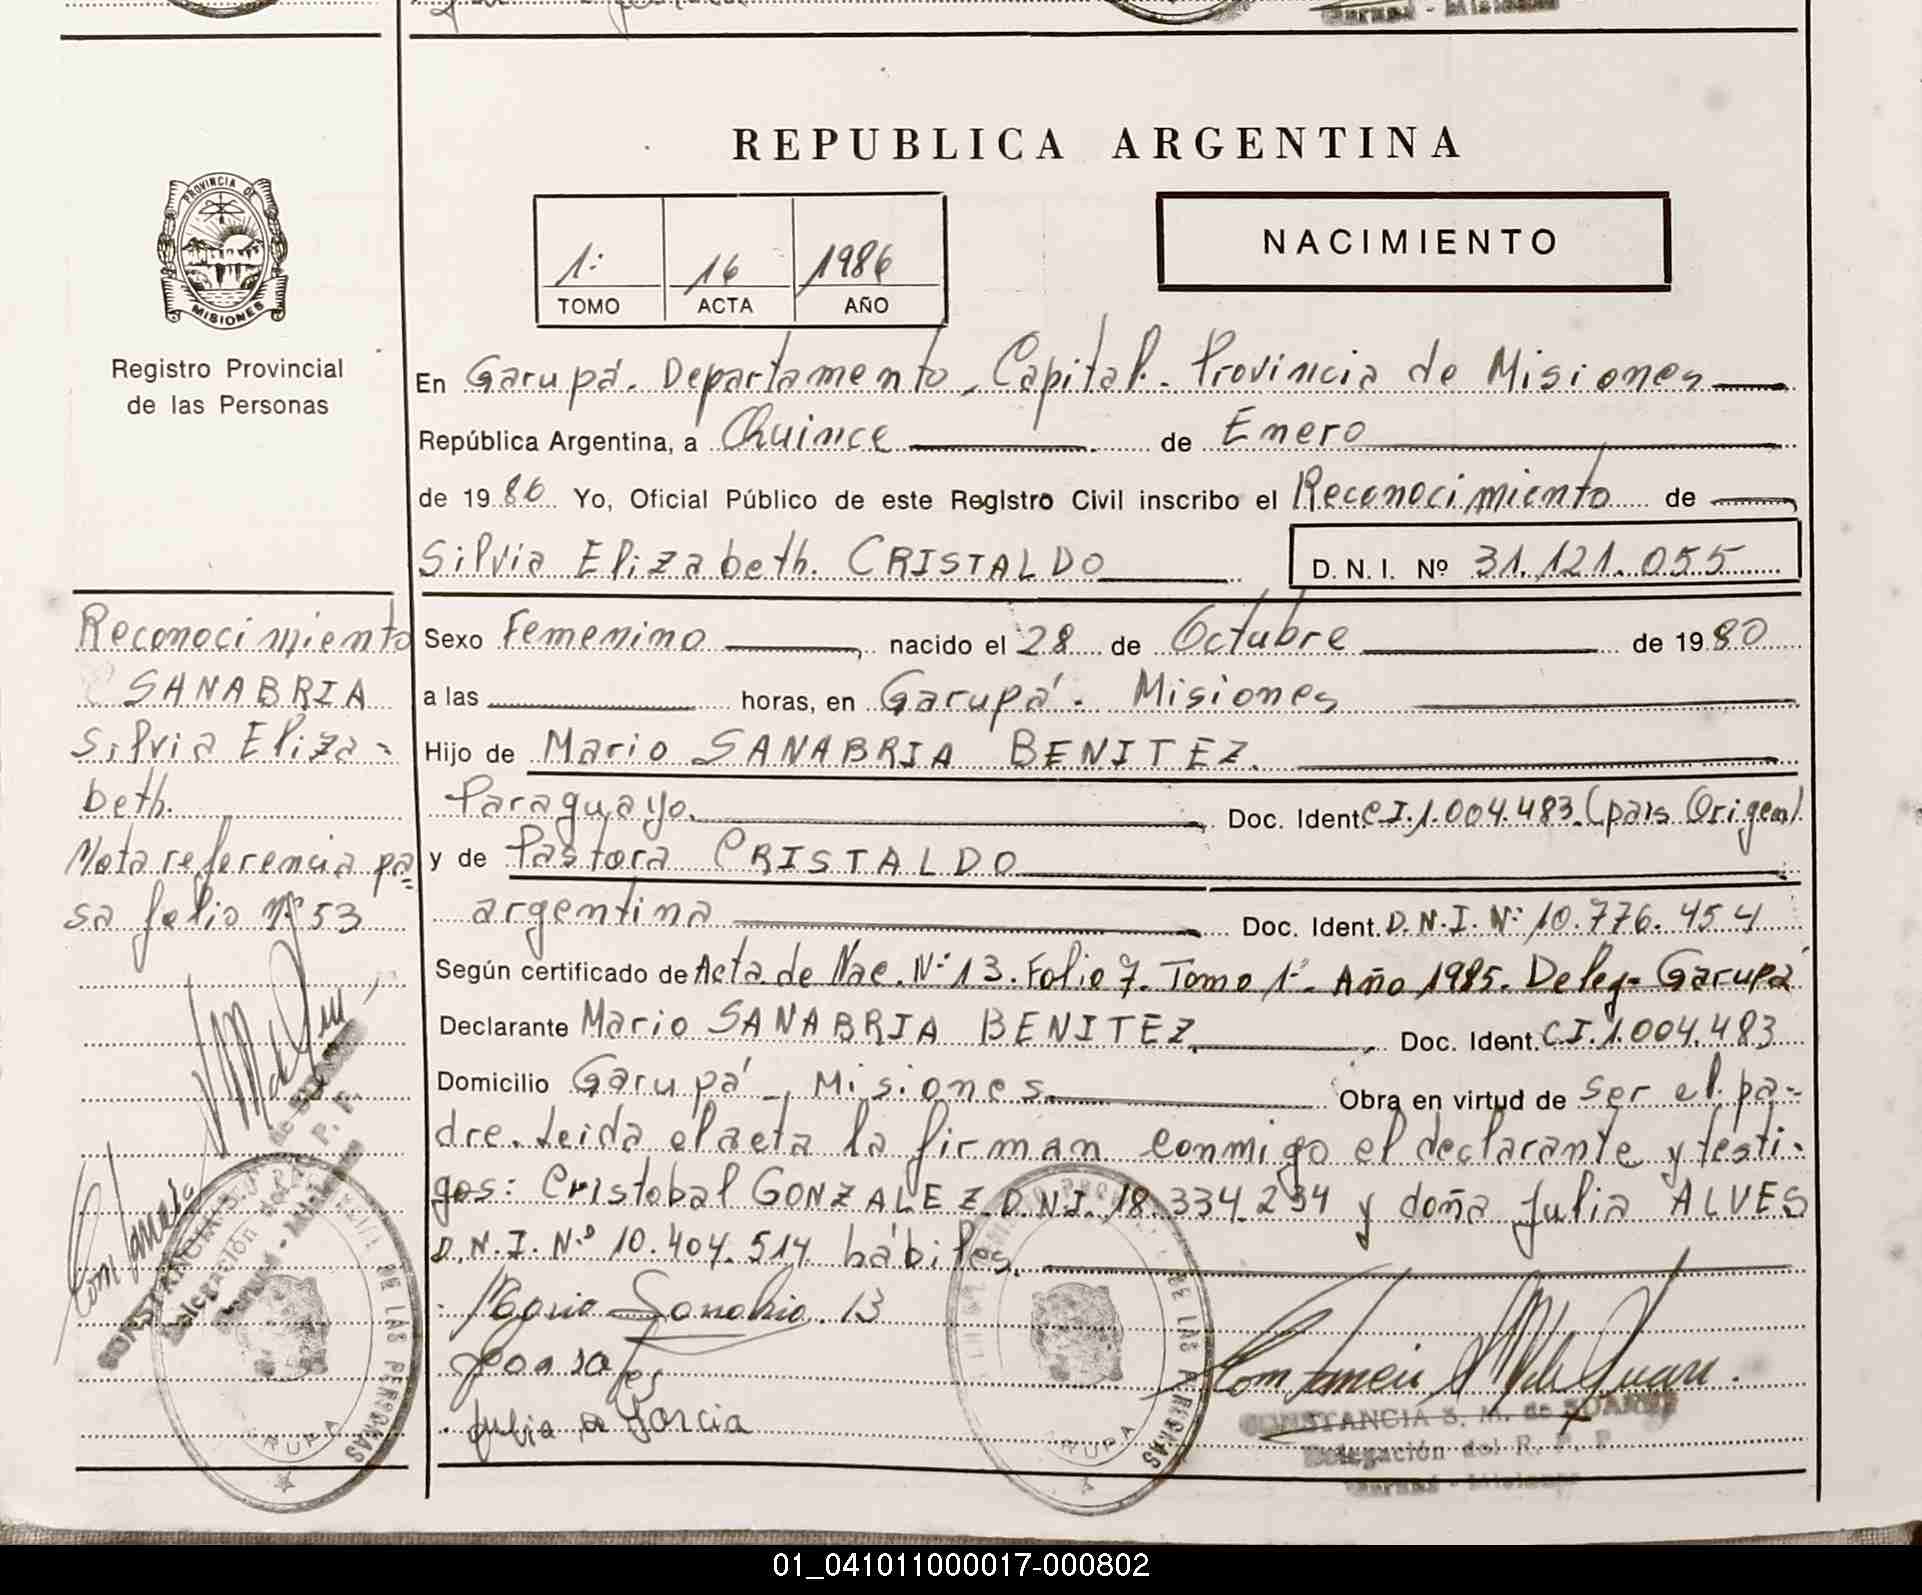 REPUBLICA ARGENTINA
PROVINCIA DE
MISIONES
Registro Provincial
de las Personas
1:
TOMO
16
ACTA
1986
AÑO
NACIMIENTO
En Garupá. Departamento, Capital. Provincia de Misiones
República Argentina, a Quince de Enero
de 1986 Yo, Oficial Público de este Registro Civil inscribo el Reconocimiento de
Silvia Elizabeth. CRISTALDO D. N. I. Nº 31.121.055
Sexo Femenino, nacido el 28 de Octubre de 1980
a las horas, en Garupá. Misiones
Hijo de Mario SANABRIA BENITEZ.
Paraguayo. Doc. Ident. C.I. 1.004.483. (pais Origen).
y de Pastora CRISTALDO
argentina Doc. Ident. D.N.I. Nº 10.776.454
Según certificado de Acta de Nac. Nº 13. Folio 7. Tomo 1º. Año 1985. Deleg- Garupá
Declarante Mario SANABRIA BENITEZ, Doc. Ident. C.I. 1.004.483
Domicilio Garupá - Misiones Obra en virtud de ser el pa-
dre. Leida el acta la firman conmigo el declarante y testi-
gos: Cristobal GONZALEZ D.N.I. 18.334.234 y doña Julia ALVES
D.N.I. Nº 10.404.514 hábiles.
Mario Sanabria. 13
Gonzales
Julia A Garcia
CONSTANCIA S. M. de SUAREZ
Delegación del R. P. P.
Garupá - Misiones
Reconocimiento
SANABRIA
Silvia Eliza-
beth.
Nota referencia pa=
sa folio Nº 53
CONSTANCIA S. M. de SUAREZ
Delegación del R. P. P.
Garupá - Misiones
DE LAS PERSONAS
RUPA
DE LAS PERSONAS
RUPA
01_041011000017-000802